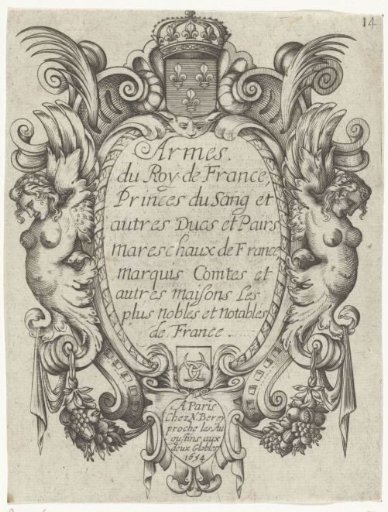 14
Armes.
du Roy de France
Princes du Sang et
autres Ducs et Pairs
mareschaux de France
marquis Comtes et
autres maisons les
plus nobles et notables
de France.
A Paris
Chez N. Berey
proche les Au
gustins aux
deux Globes
1654